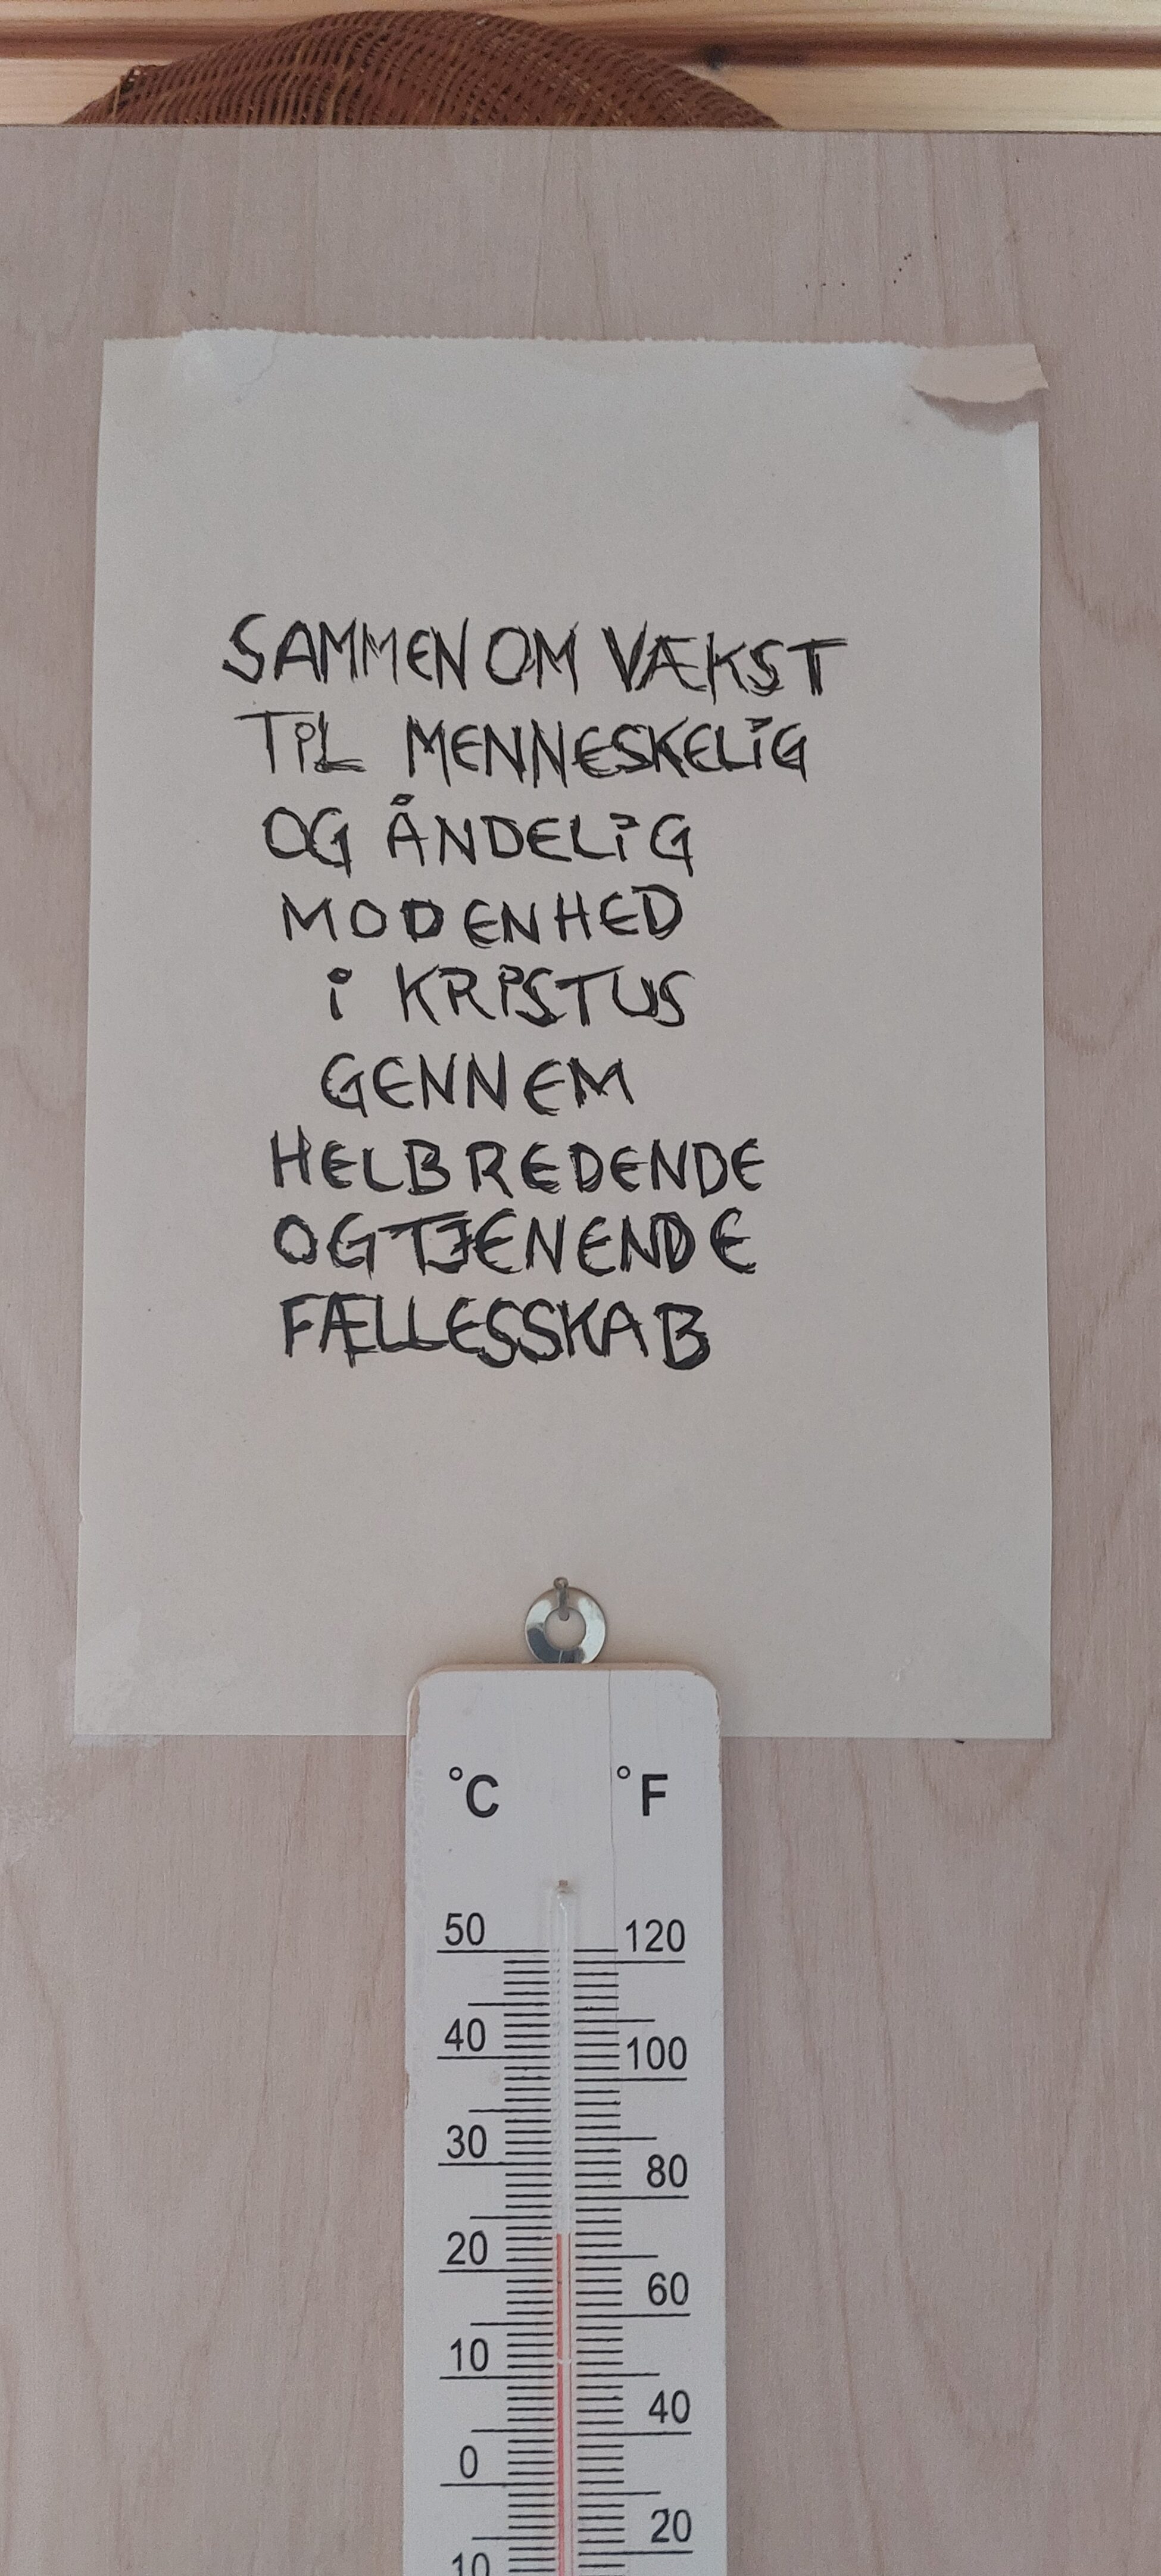 SAMMEN OM VÆKST
TIL MENNESKELIG
OG ÅNDELIG
MODENHED
I KRISTUS
GENNEM
HELBREDENDE
OG TJENENDE
FÆLLESSKAB
°C °F
50 120
40 100
30 80
20 60
10 40
0 20
10